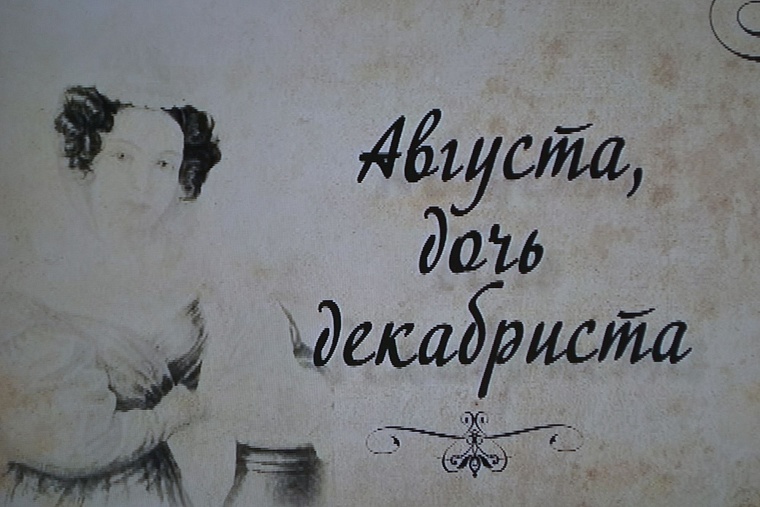 Августа,
дочь
декабриста